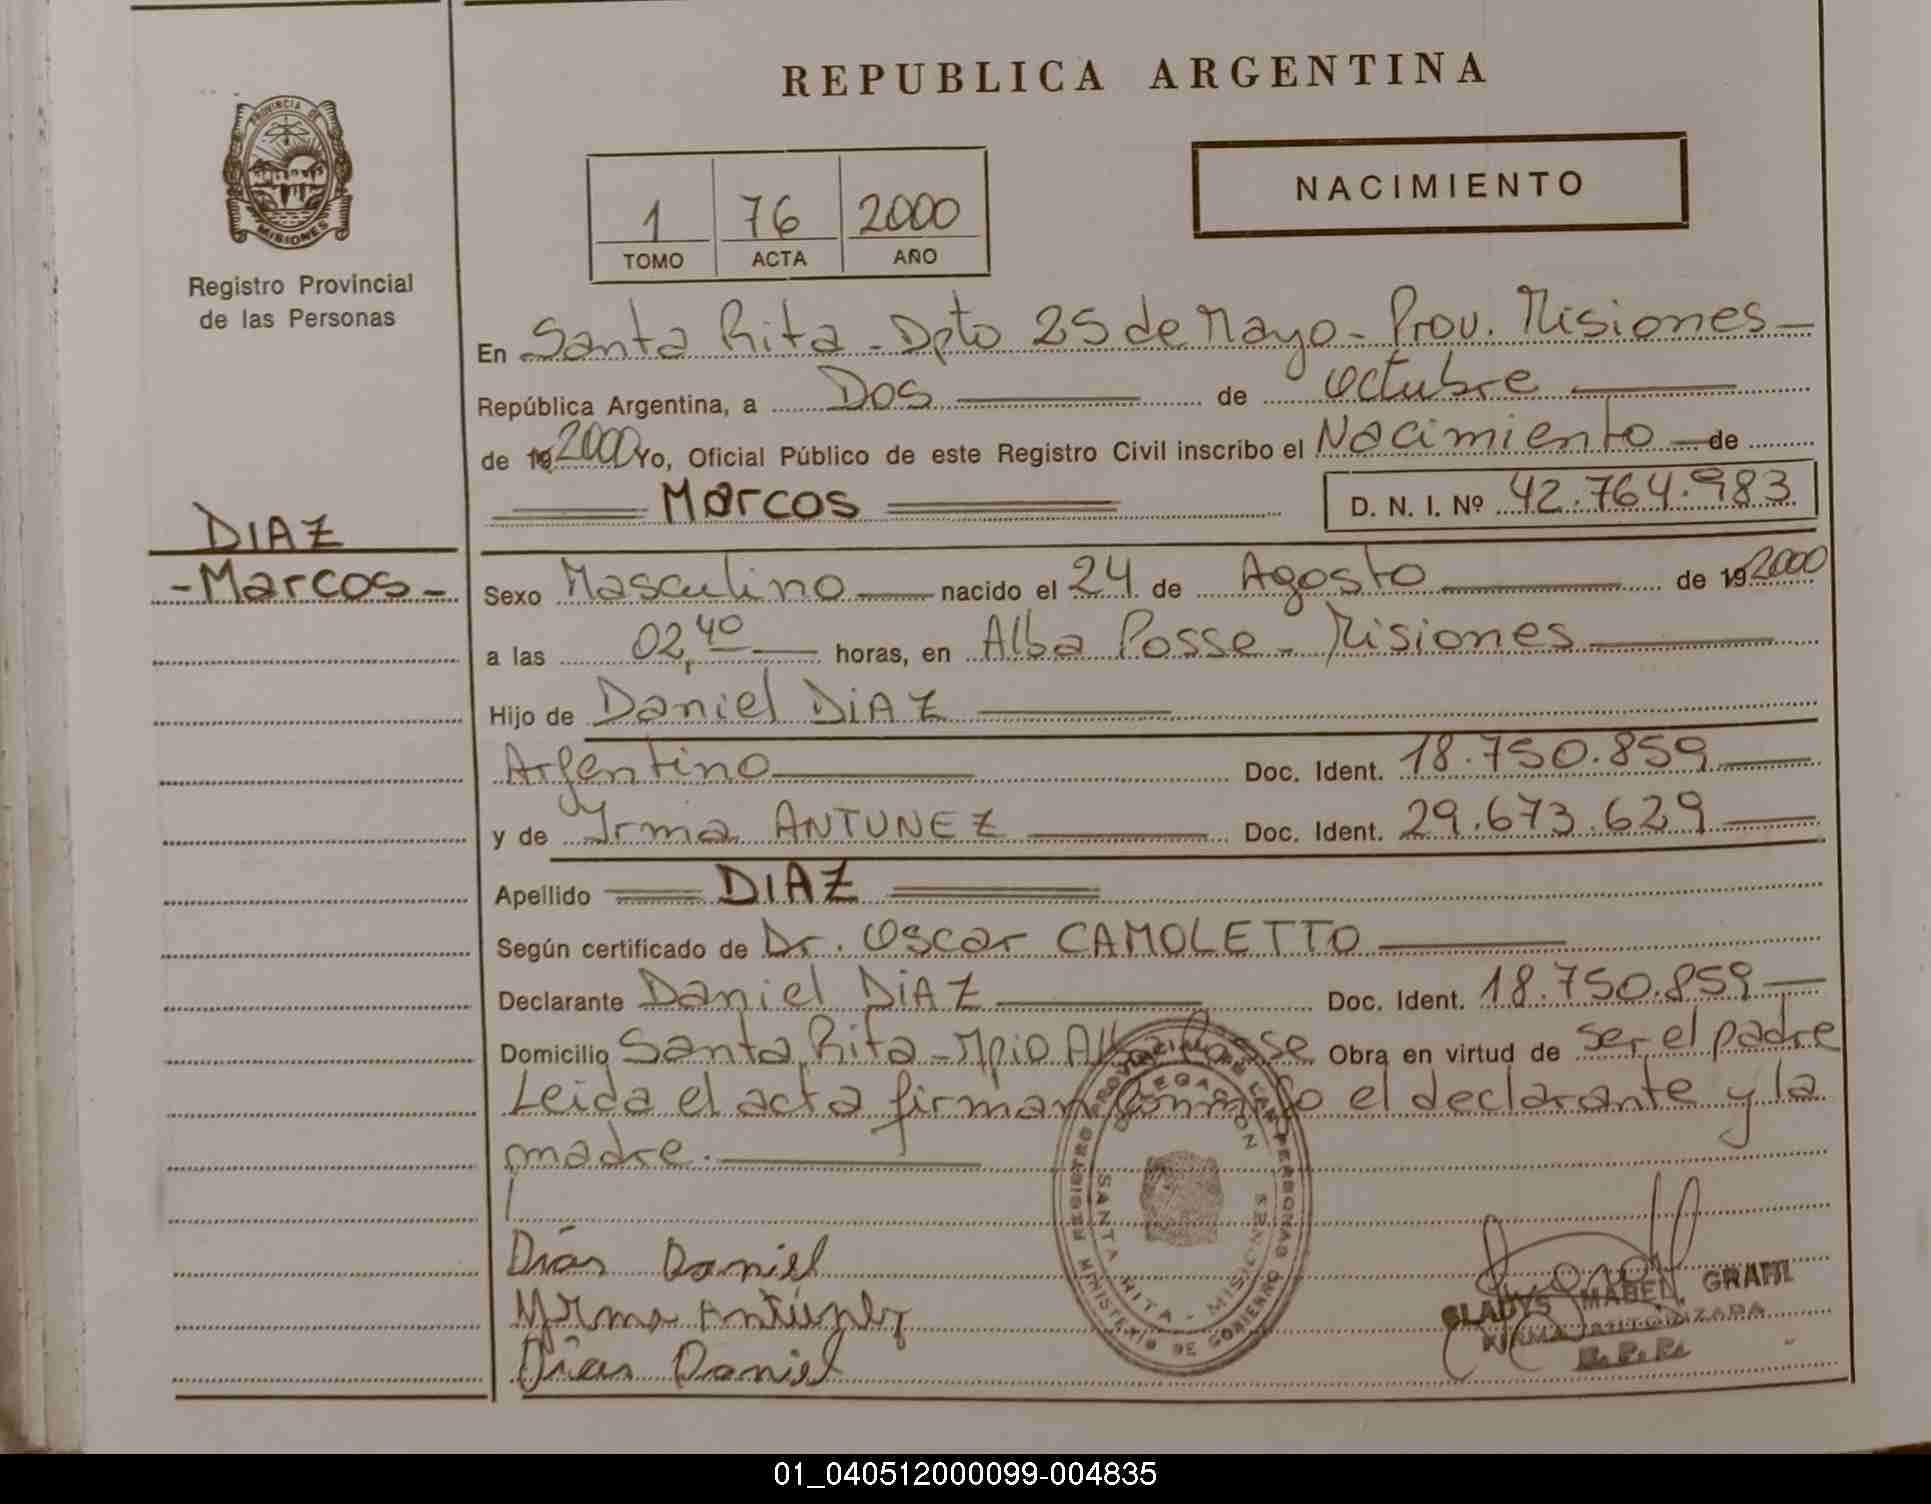 REPUBLICA ARGENTINA
PROVINCIA DE
MISIONES
Registro Provincial
de las Personas
1 76 2000
TOMO ACTA AÑO
NACIMIENTO
En Santa Rita - Dpto 25 de Mayo - Prov. Misiones
República Argentina, a Dos de octubre
de 19 2000 Yo, Oficial Público de este Registro Civil inscribo el Nacimiento de
Marcos D. N. I. Nº 42.764.983
DIAZ
- Marcos -
Sexo Masculino nacido el 24 de Agosto de 19 2000
a las 02,40 horas, en Alba Posse - Misiones
Hijo de Daniel DiAZ
Argentino Doc. Ident. 18.750.859
y de Yrma ANTUNEZ Doc. Ident. 29.673.629
Apellido DIAZ
Según certificado de Dr. Oscar CAMOLETTO
Declarante Daniel DiAZ Doc. Ident. 18.750.859
Domicilio Santa Rita - Mpio Alba Posse Obra en virtud de ser el padre
Leida el acta firman conmigo el declarante y la
madre.
REGISTRO PROVINCIAL DE LAS PERSONAS
MINISTERIO DE GOBIERNO
DELEGACION
SANTA RITA - MISIONES
Días Daniel
Yrma Antúnez
Días Daniel
GLADYS MABEL GRAHL
FIRMA AUTORIZADA
R. P. P.
01_040512000099-004835